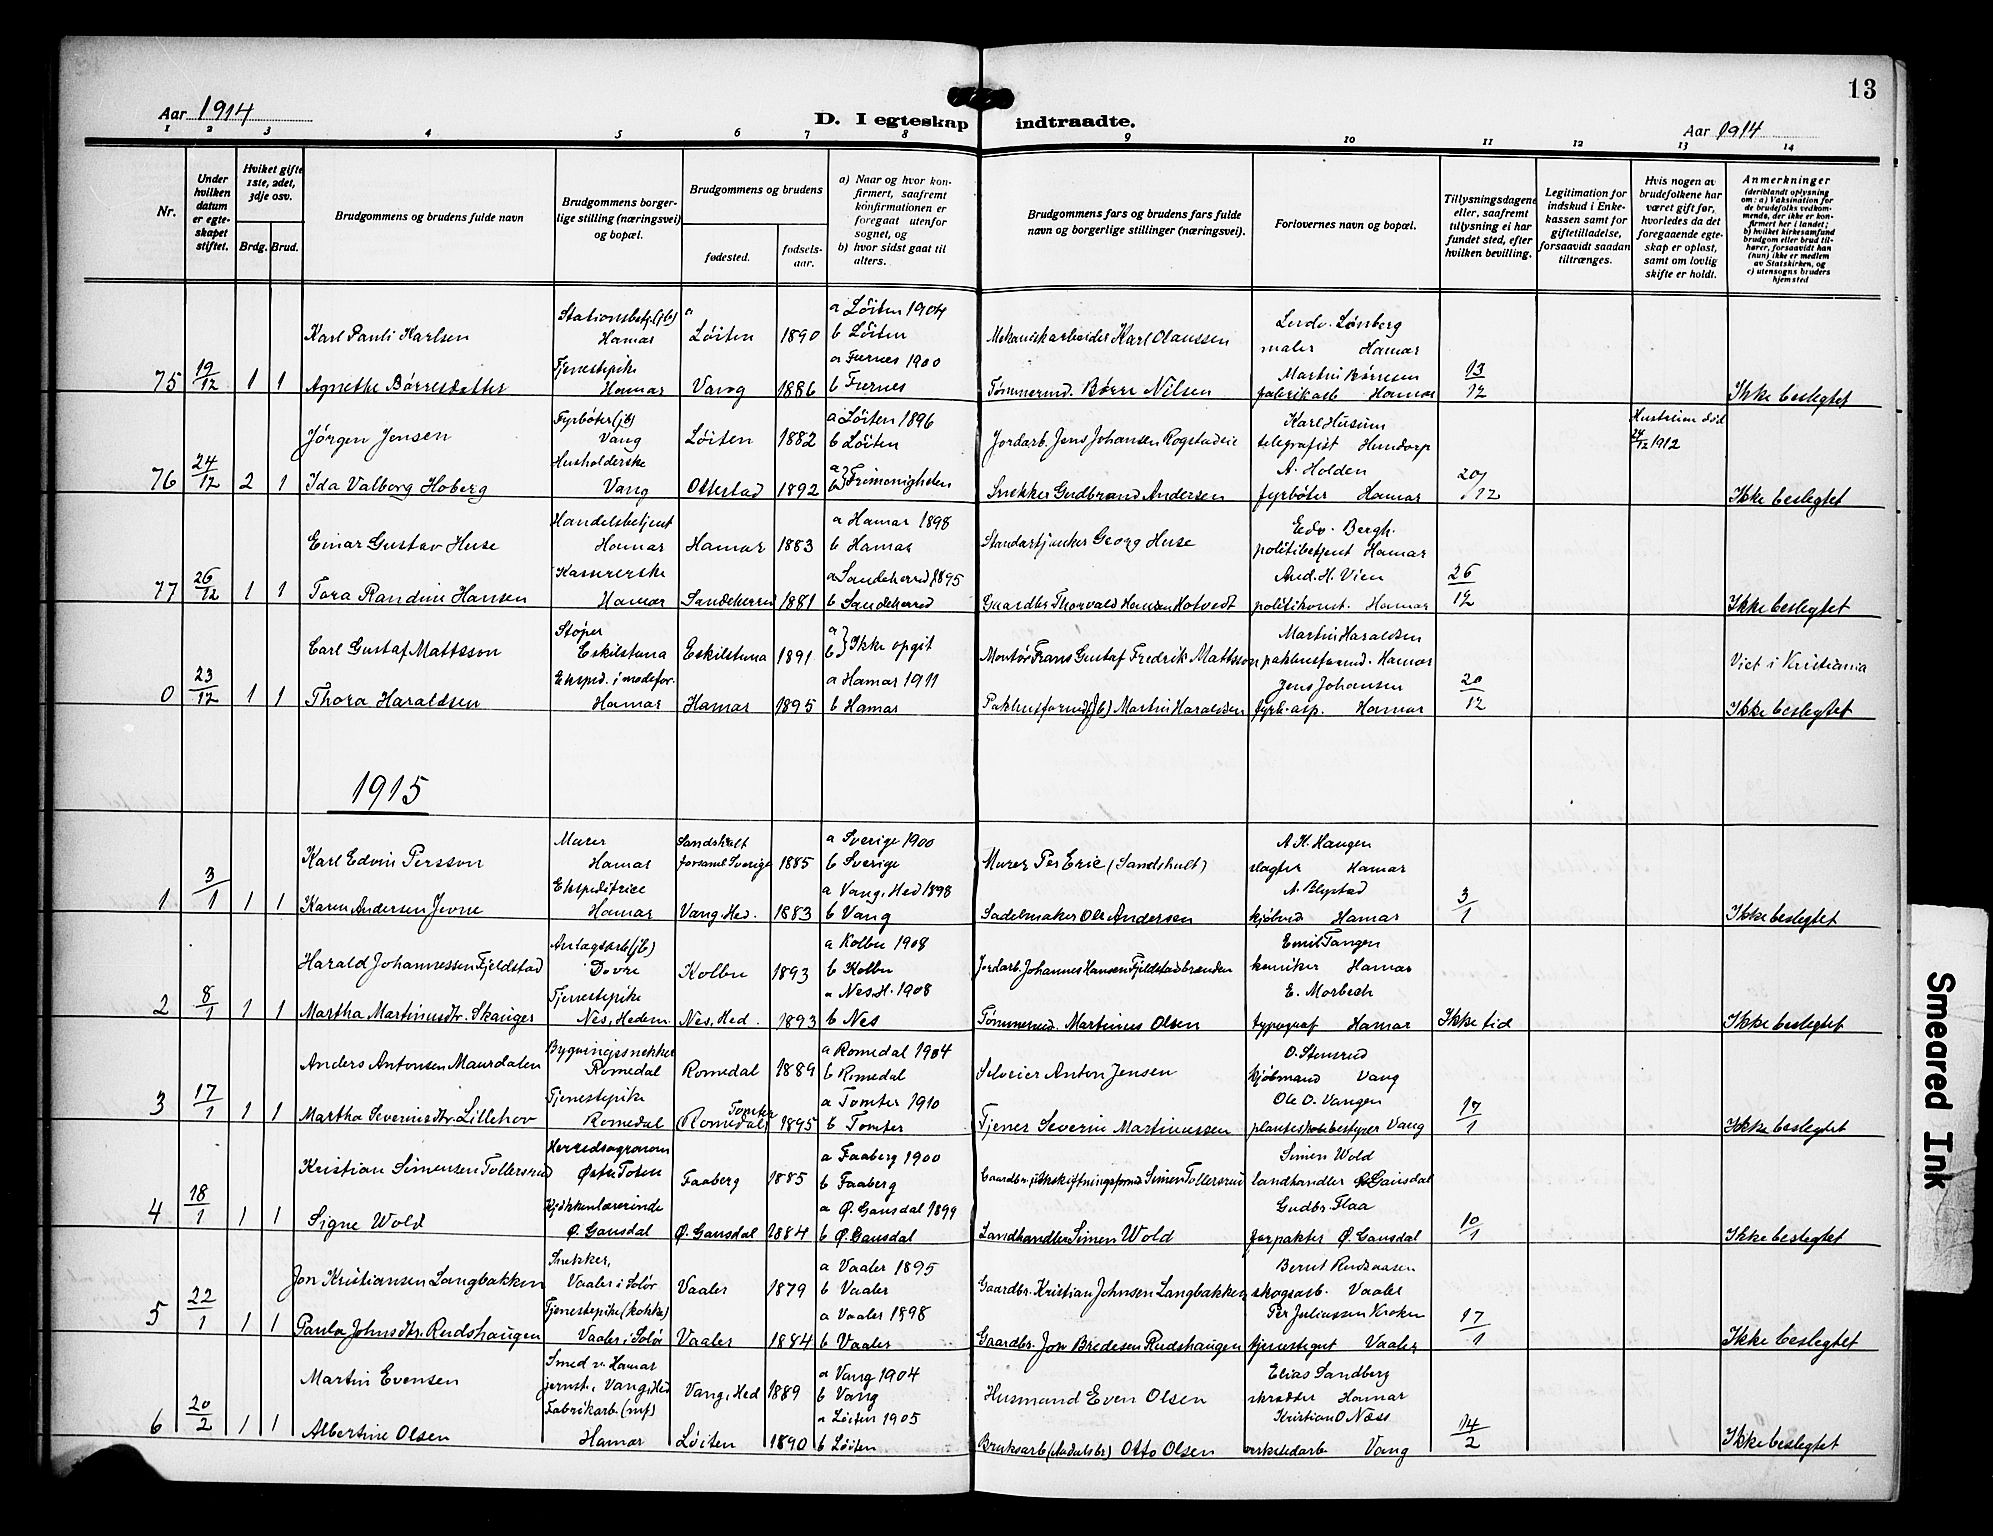 13
Aar 1914
D. I egteskap indtraadte.
Aar 1914
1 2 3 4 5 6 7 8 9 10 11 12 13 14
Nr.
Under hvilken datum er egteskapet stiftet.
Hvilket gifte 1ste, 2det, 3dje osv.
Brdg. Brud.
Brudgommens og brudens fulde navn
Brudgommens borgerlige stilling (næringsvei) og bopæl.
Brudgommens og brudens
fødested.
fødselsaar.
a) Naar og hvor konfirmert, saafremt konfirmationen er foregaat utenfor sognet, og
b) hvor sidst gaat til alters.
Brudgommens fars og brudens fars fulde navn og borgerlige stillinger (næringsvei).
Forlovernes navn og bopæl.
Tillysningsdagene eller, saafremt tillysning ei har fundet sted, efter hvilken bevilling.
Legitimation for indskud i Enkekassen samt for giftetilladelse, forsaavidt saadan tiltrænges.
Hvis nogen av brudefolkene har været gift før, hvorledes da det foregaaende egteskap er opløst, samt om lovlig skifte er holdt.
Anmerkninger
(deriblandt oplysning om: a) Vaksination for de brudefolks vedkommende, der ikke er konfirmert her i landet; b) hvilket kirkesamfund brudgom eller brud tilhører, forsaavidt han (hun) ikke er medlem av Statskirken, og c) utensogns bruders hjemsted
Karl Pauli Karlsen Stationsbetj. (jb) Hamar Løiten 1890 a Løiten 1904 b Løiten Mekanisk arbeider Karl Olaussen Ludv. Lønberg maler Hamar
75 19/12 1 1 Agnethe Børresdatter Tjenestepike Hamar Vang 1886 a Furnes 1900 b Furnes Tømmermd. Børre Nilsen Martin Børresen fabrikarb Hamar 13/12 Ikke beslegtet
Jørgen Jensen Fyrbøter (jb) Vang Løiten 1882 a Løiten 1896 b Løiten Jordarb. Jens Johansen Rogstadeie Karl Husum telegrafist Hundorp Hustruen død 24/12 1912
76 24/12 2 1 Ida Valborg Hoberg Husholderske Vang Ottestad 1892 a b Frimenigheden Snekker Gudbrand Andersen A. Holden fyrbøter Hamar 20/12 Ikke beslegtet
Einar Gustav Huse Handelsbetjent Hamar Hamar 1883 a Hamar 1898 b Hamar Standartjunker Georg Huse Edv. Bergh. politibetjent Hamar
77 26/12 1 1 Tora Randine Hansen Kassererske Hamar Sandeherred 1881 a Sandeherred 1895 b Sandeherred Gaardbr Thorvald Hansen Hotvedt And. H. Vien politikonst. Hamar 26/12 Ikke beslegtet
Carl Gustaf Mattsson Støper Eskilstuna Eskilstuna 1891 a b Ikke opgit Montør Frans Gustaf Fredrik Mattsson Martin Haraldsen pakhusformd. Hamar Viet i Kristiania
0 23/12 1 1 Thora Haraldsen Eksped. i modefor. Hamar Hamar 1895 a Hamar 1911 b Hamar Pakhusformd (jb) Martin Haraldsen Jens Johansen fyrb. asp. Hamar 20/12 Ikke beslegtet
1915
Karl Edvin Persson Murer Hamar Sandshult forsaml Sverige 1885 a Sverige 1900 b Sverige Murer Per Eric (Sandshult) A. K. Haugen slagter Hamar
1 3/1 1 1 Karen Andersen Jevne Ekspeditrice Hamar Vang, Hed. 1883 a Vang, Hed 1898 b Vang Sadelmaker Ole Andersen A. Blystad Hamar 3/1 Ikke beslegtet
Harald Johannessen Fjeldstad Anlægsarb (jb) Dovre Kolbu 1893 a Kolbu 1908 b Kolbu Jordarb. Johannes Hansen Fjeldstadbraenden Emil Tangen kemiker Hamar
2 8/1 1 1 Martha Martinusdtr. Skauger Tjenestepike Nes, Hedem. Nes, Hed. 1893 a Nes, H. 1908 b Nes Tømmermd. Martinus Olsen E. Morbech typograf Hamar Ikke tid Ikke beslegtet
Anders Antonsen Maurdalen Bygningssnekker Romedal Romedal 1889 a Romedal 1904 b Romedal Selveier Anton Jensen O. Stensrud kjøbmand Vang
3 17/1 1 1 Martha Severinsdtr. Lillehov Tjenestepike Romedal Tomter (Romedal) 1895 a Tomter 1910 b Tomter Tjener Severin Martinussen Ole O. Vangen planteskolebestyrer Vang 17/1 Ikke beslegtet
Kristian Simensen Tollersrud Herredsagronom Østre Toten Faaberg 1885 a Faaberg 1900 b Faaberg Gaardbr. utskiftningsformd Simen Tollersrud Simen Wold landhandler Ø. Gausdal
4 18/1 1 1 Signe Wold Kjøkkenlærerinde Ø. Gausdal Ø. Gausdal 1884 a Ø. Gausdal 1899 b Ø. Gausdal Landhandler Simen Wold Gudbr. Flaa forpakter Ø. Gausdal 10/1 Ikke beslegtet
Jon Kristiansen Langbakken Snekker, Vaaler i Solør Vaaler 1879 a Vaaler 1895 b Vaaler Gaardbr. Kristian Johnsen Langbakken Bernt Rudsaasen skogsarb. Vaaler
5 22/1 1 1 Paula Johnsdtr. Rudshaugen Tjenestepike (kokke) Vaaler i Solør Vaaler 1884 a Vaaler 1898 b Vaaler Gaardbr. Jon Bredesen Rudshaugen Per Juliussen Kroken tjenestegut Vaaler 17/1 Ikke beslegtet
Martin Evensen Smed v. Hamar jernst., Vang, Hed Vang, Hed 1889 a Vang 1904 b Vang Husmand Even Olsen Elias Sandberg skrædder Hamar
6 20/2 1 1 Albertine Olsen Fabrikarb. (mf) Hamar Løiten 1890 a Løiten 1905 b Løiten Bruksarb (Aadalsbr) Otto Olsen Kristian O. Næss verkstedarb Vang 14/2 Ikke beslegtet
Smeared Ink